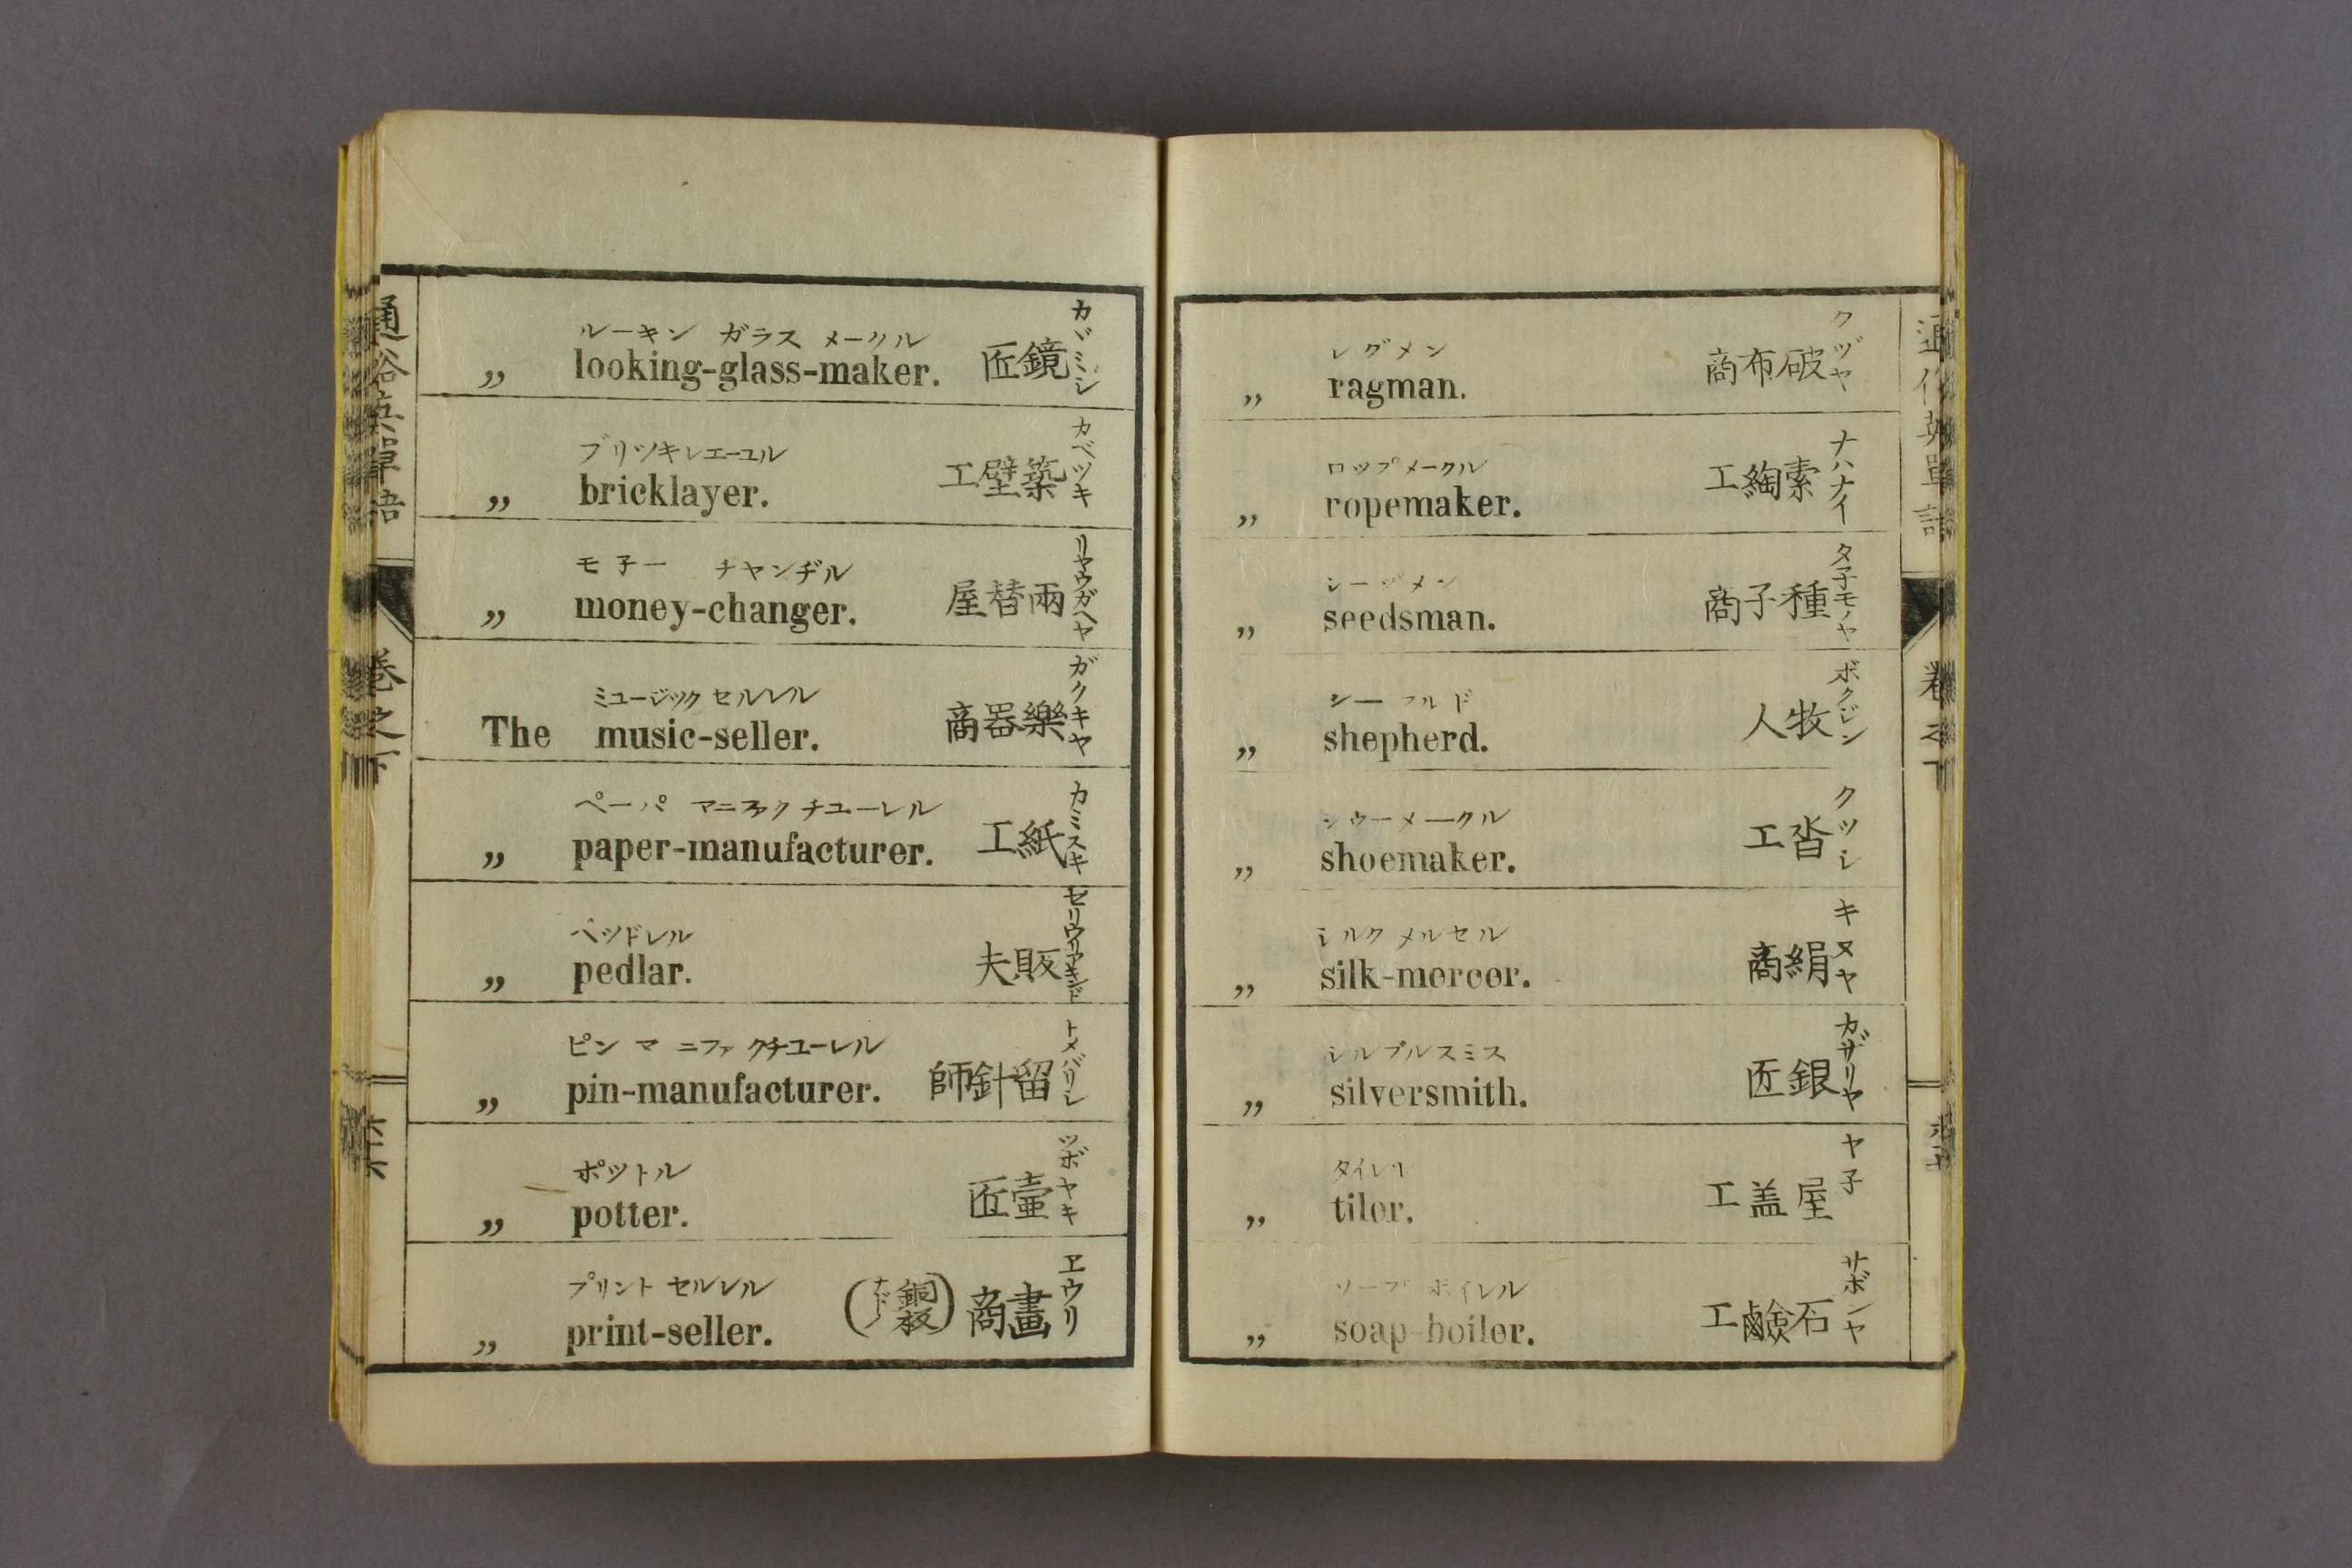 レグメン
„ ragman.
破布商
クヅヤ
ロップメークル
„ ropemaker.
索綯工
ナハナイ
シーヅメン
„ seedsman.
種子商
タ子モノヤ
シーフルド
„ shepherd.
牧人
ボクジン
シウーメークル
„ shoemaker.
沓工
クツシ
シルクメルセル
„ silk-mercer.
絹商
キヌヤ
シルブルスミス
„ silversmith.
銀匠
カザリヤ
タイレル
„ tiler.
屋盖工
ヤ子
ソープボイレル
„ soap-boiler.
石鹼工
サボンヤ
卷之下
ルーキン ガラス メークル
„ looking-glass-maker.
鏡匠
カヾミシ
ブリツキレエーユル
„ bricklayer.
築壁工
カベツキ
モ子ー チヤンヂル
„ money-changer.
兩替屋
リヤウガヘヤ
ミュージック セルレル
The music-seller.
樂器商
ガクキヤ
ペーパ マニファクチユーレル
„ paper-manufacturer.
紙工
カミスキ
ペツドレル
„ pedlar.
販夫
セリウリアキンド
ピン マニファクチユーレル
„ pin-manufacturer.
留針師
トメバリシ
ポツトル
„ potter.
壷匠
ツボヤキ
プリント セルレル
„ print-seller.
畫商(銅板ナド)
ヱウリ
卷之下